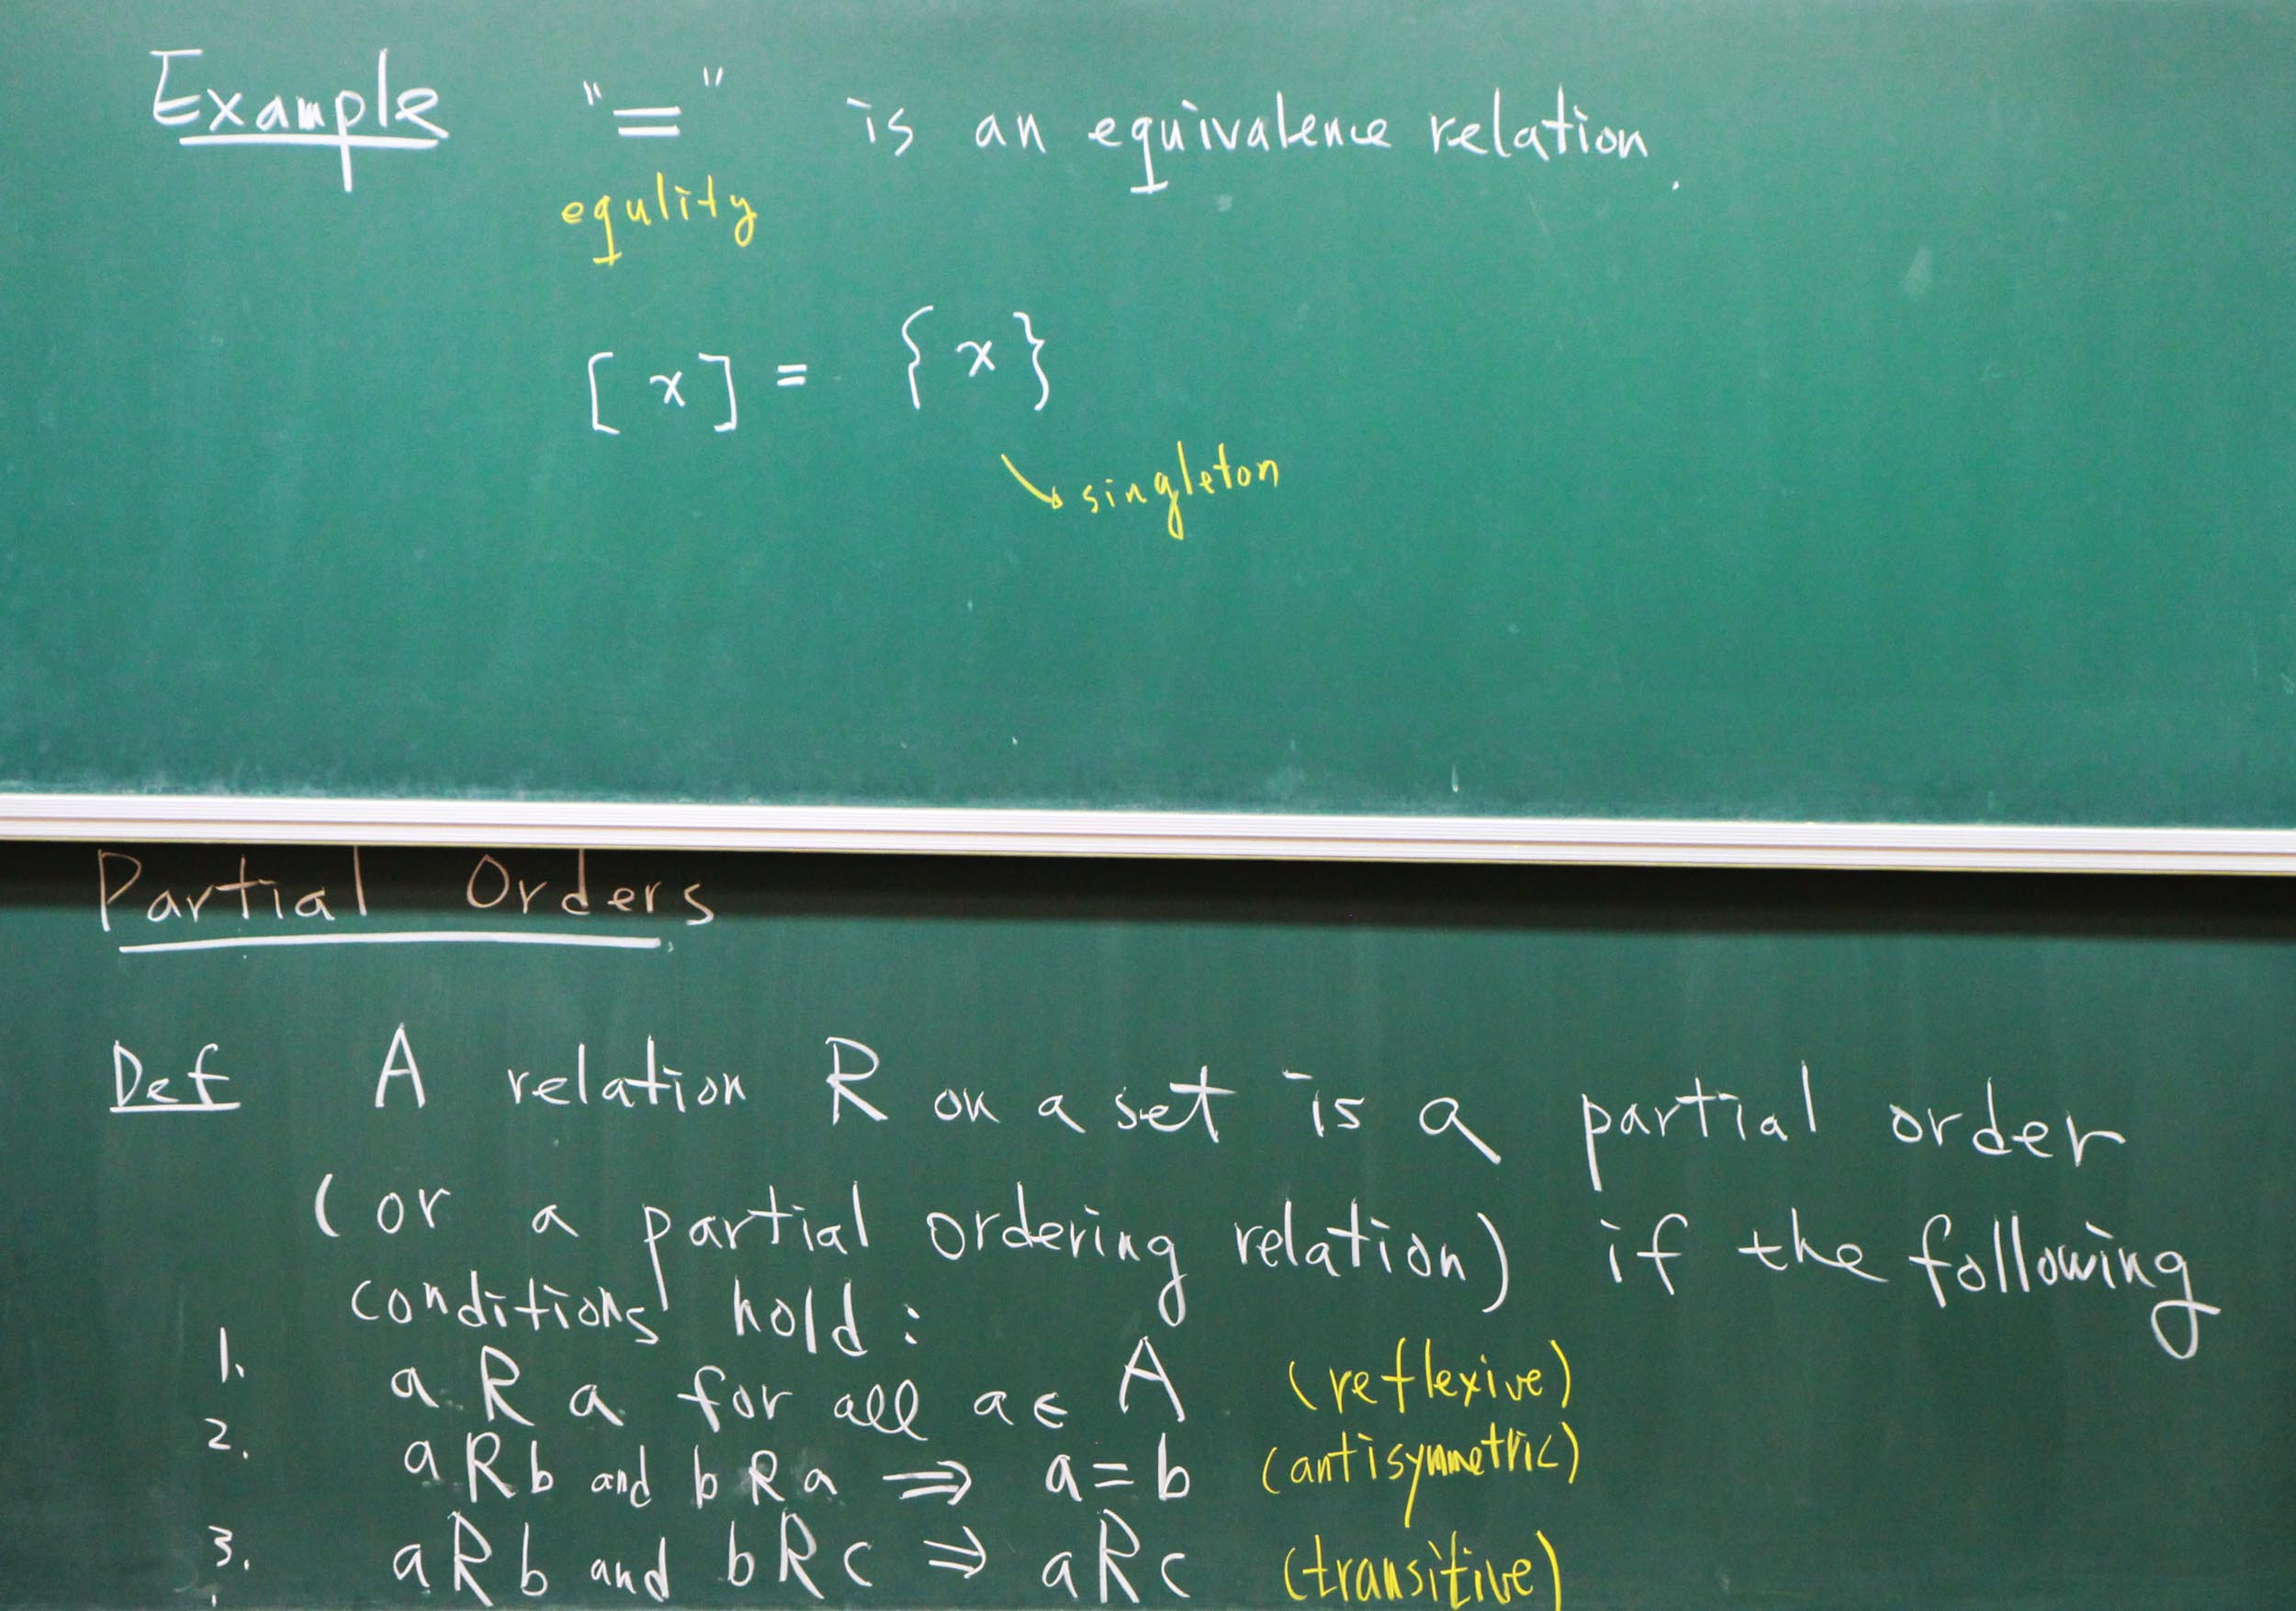 Example "=" is an equivalence relation.
equlity
[x] = {x}
singleton
Partial Orders
Def A relation R on a set is a partial order
(or a partial ordering relation) if the following
conditions hold:
1. a R a for all a ∈ A (reflexive)
2. a R b and b R a ⇒ a = b (antisymmetric)
3. a R b and b R c ⇒ a R c (transitive)